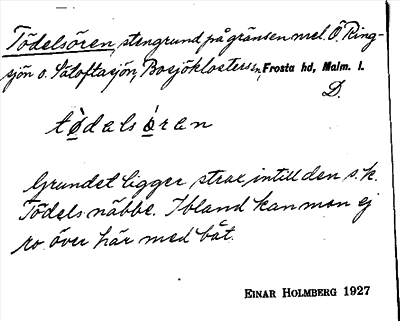 Tödelsören, stengrund på gränsen mel. Ö. Ring-
sjön o. Sätoftasjön, Bosjöklosters sn, Frosta hd, Malm. l.
D.
tödalsöran
Grundet ligger strax intill den s.k.
Tödels näbbe. Ibland kan man ej
ro över här med båt.
EINAR HOLMBERG 1927